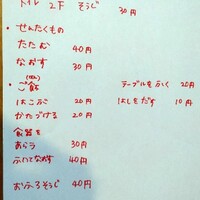 トイレ 2F そうじ 30円
・せんたくもの
たたむ 40円
なおす 30円
・ご飯
はこぶ 20円 テーブルをふく 20円
かたづける 20円 はしをだす 10円
食器を
あらう 30円
ふいてなおす 40円
おふろそうじ 40円